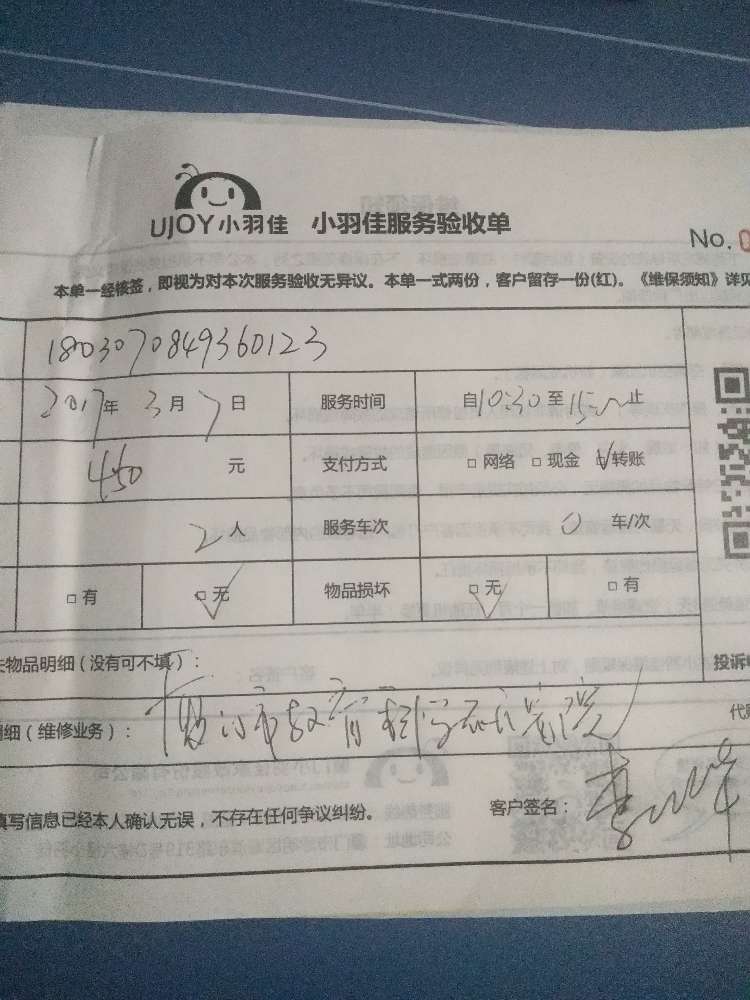 UJOY小羽佳 小羽佳服务验收单
No.0
本单一经核签，即视为对本次服务验收无异议。本单一式两份，客户留存一份(红)。《维保须知》详见
1803070849360123
2017年 3月 7日 服务时间 自10:30至15 止
450 元 支付方式 □网络 □现金 □转账
2人 服务车次 0 车/次
□有 □无 物品损坏 □无 □有
物品明细（没有可不填）：
投诉
细（维修业务）：厦门市教育科学研究院
代
填写信息已经本人确认无误，不存在任何争议纠纷。 客户签名：